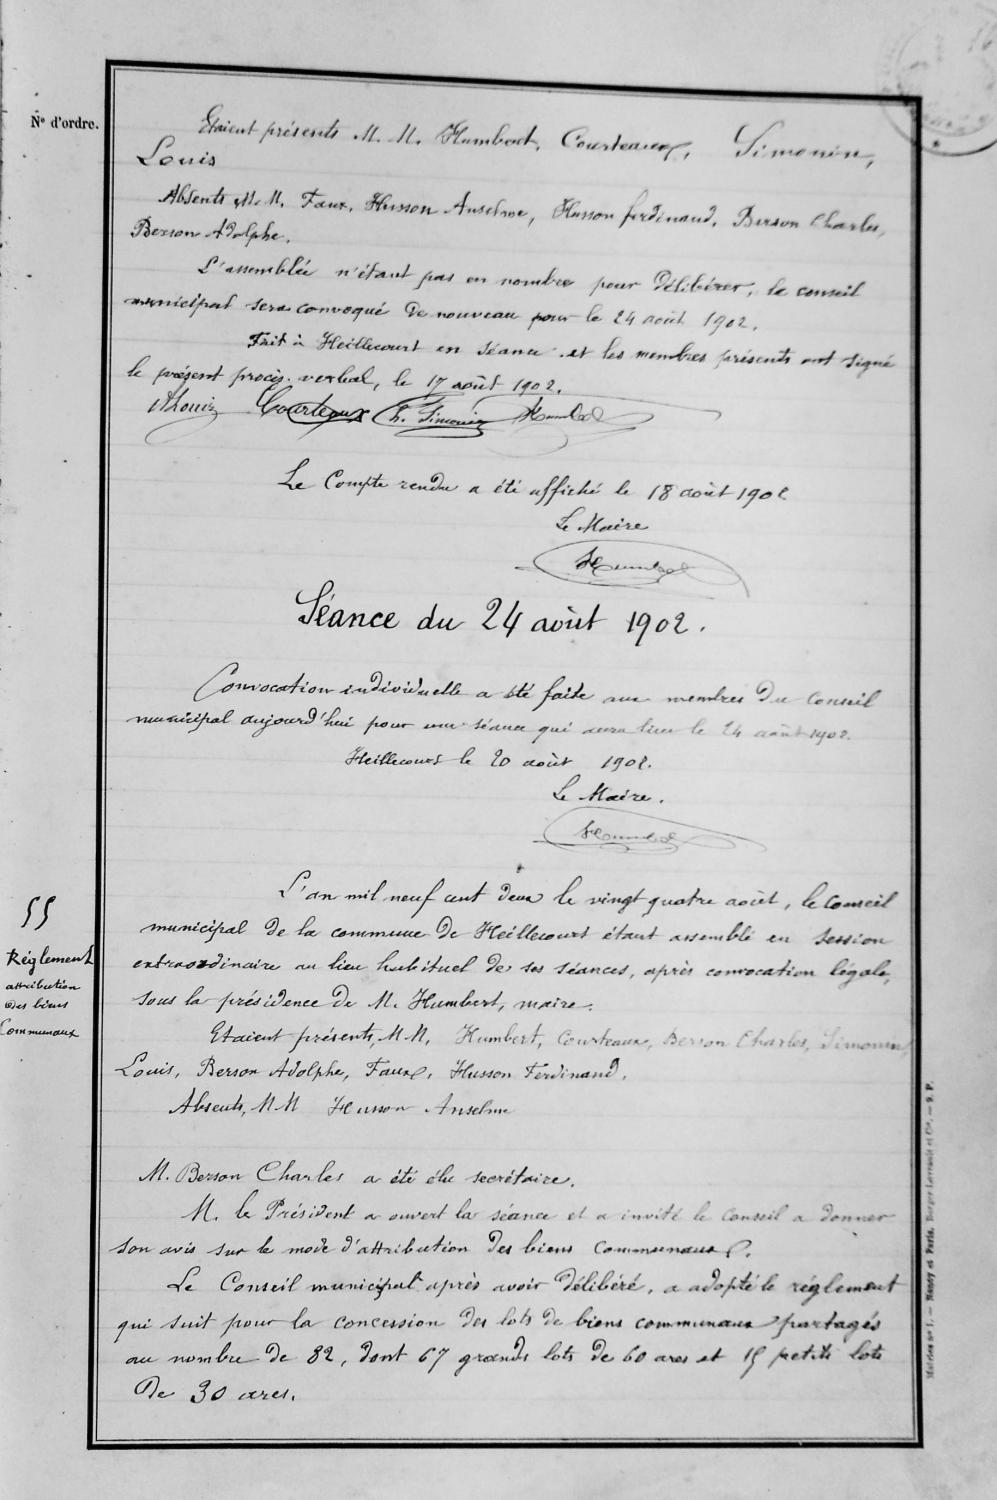 Nº d'ordre.
Etaient présents M. M. Humbert, Courteaux, Simonin,
Louis
Absents M.M. Faux, Husson Anselme, Husson ferdinand, Berson Charles,
Berson Adolphe.
L'assemblée n'étant pas en nombre pour délibérer, le conseil
municipal sera convoqué de nouveau pour le 24 août 1902.
Fait à Heillecourt en séance et les membres présents ont signé
le présent procès-verbal, le 17 août 1902.
Louis Courteaux Simonin Humbert
Le Compte rendu a été affiché le 18 août 1902
Le Maire
Humbert
Séance du 24 août 1902.
Convocation individuelle a été faite aux membres du Conseil
municipal aujourd'hui pour une séance qui aura lieu le 24 août 1902.
Heillecourt le 20 août 1902.
Le Maire.
Humbert
L'an mil neuf cent deux le vingt quatre août, le Conseil
municipal de la commune de Heillecourt étant assemblé en session
extraordinaire au lieu habituel de ses séances, après convocation légale,
sous la présidence de M. Humbert, maire.
Etaient présents, MM, Humbert, Courteaux, Berson Charles, Simonin,
Louis, Berson Adolphe, Faux, Husson Ferdinand.
Absents, MM Husson Anselme
55
Réglement
attribution
des biens
Communaux
M. Berson Charles a été élu secrétaire.
M. le Président a ouvert la séance et a invité le Conseil a donner
son avis sur le mode d'attribution des biens communaux.
Le Conseil municipal après avoir délibéré, a adopté le réglement
qui suit pour la concession des lots de biens communaux partagés
au nombre de 82, dont 67 grands lots de 60 ares et 15 petits lots
de 30 ares.
Nancy et Paris. Berger-Levrault et Cie. — S. P.